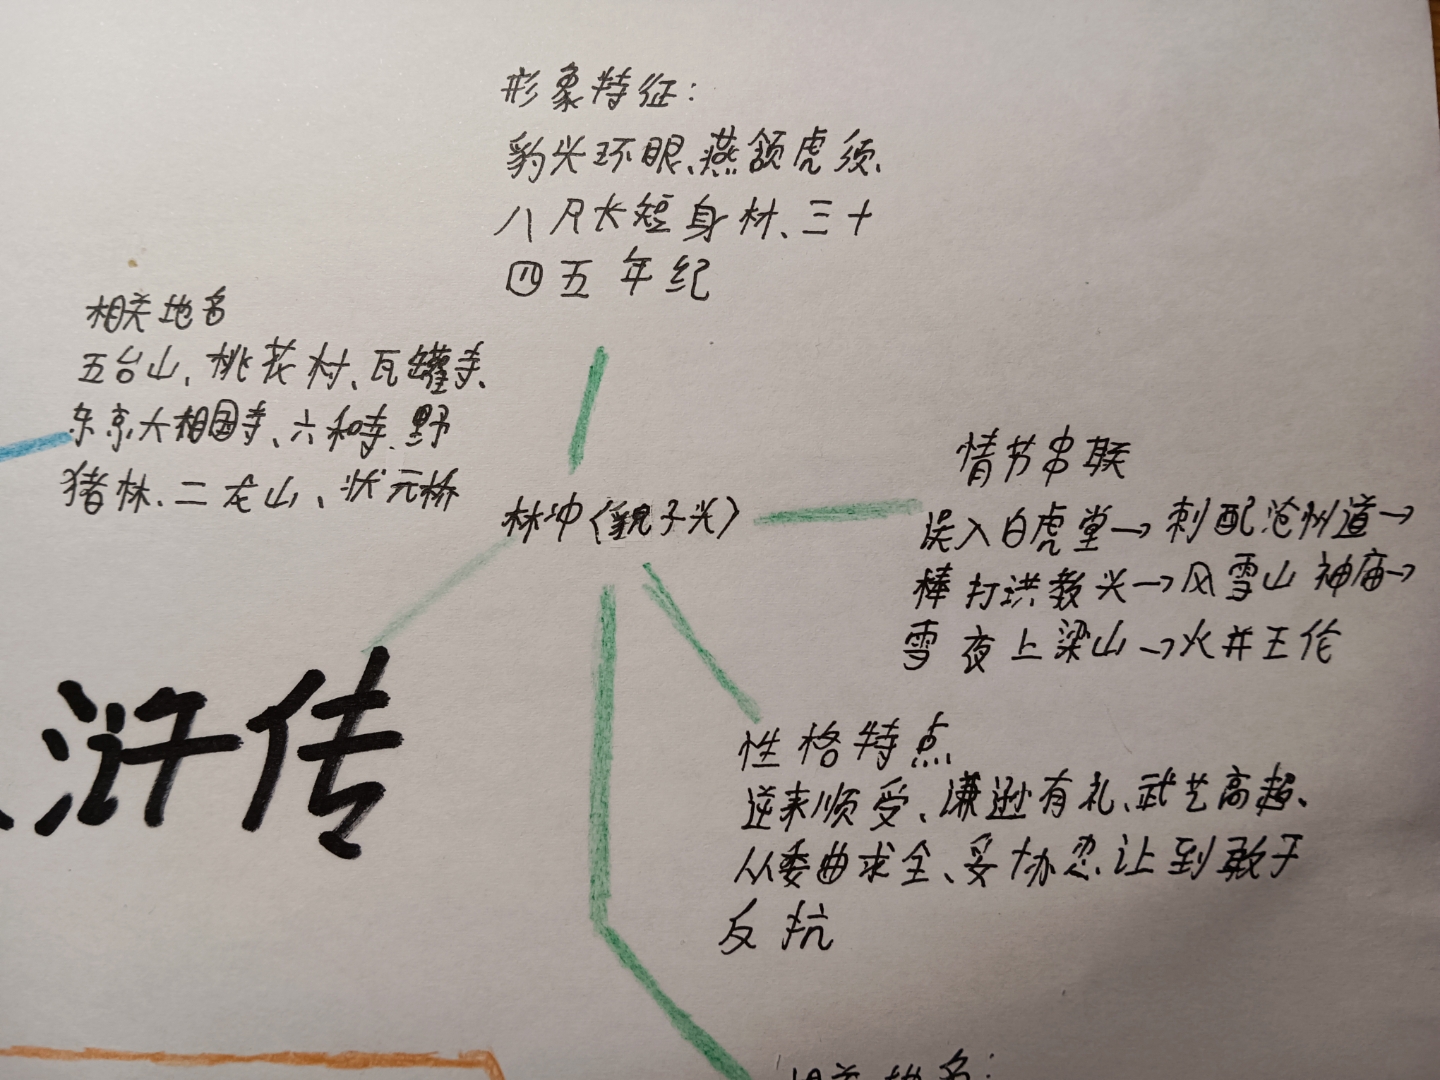 形象特征：
豹头环眼、燕颔虎须、
八尺长短身材、三十
四五年纪
相关地名
五台山、桃花村、瓦罐寺、
东京大相国寺、六和寺、野
猪林、二龙山、状元桥
林冲（豹子头）
情节串联
误入白虎堂→刺配沧州道→
棒打洪教头→风雪山神庙→
雪夜上梁山→火并王伦
性格特点
逆来顺受、谦逊有礼、武艺高超、
从委曲求全、妥协忍让到敢于
反抗
浒传
相关地名：